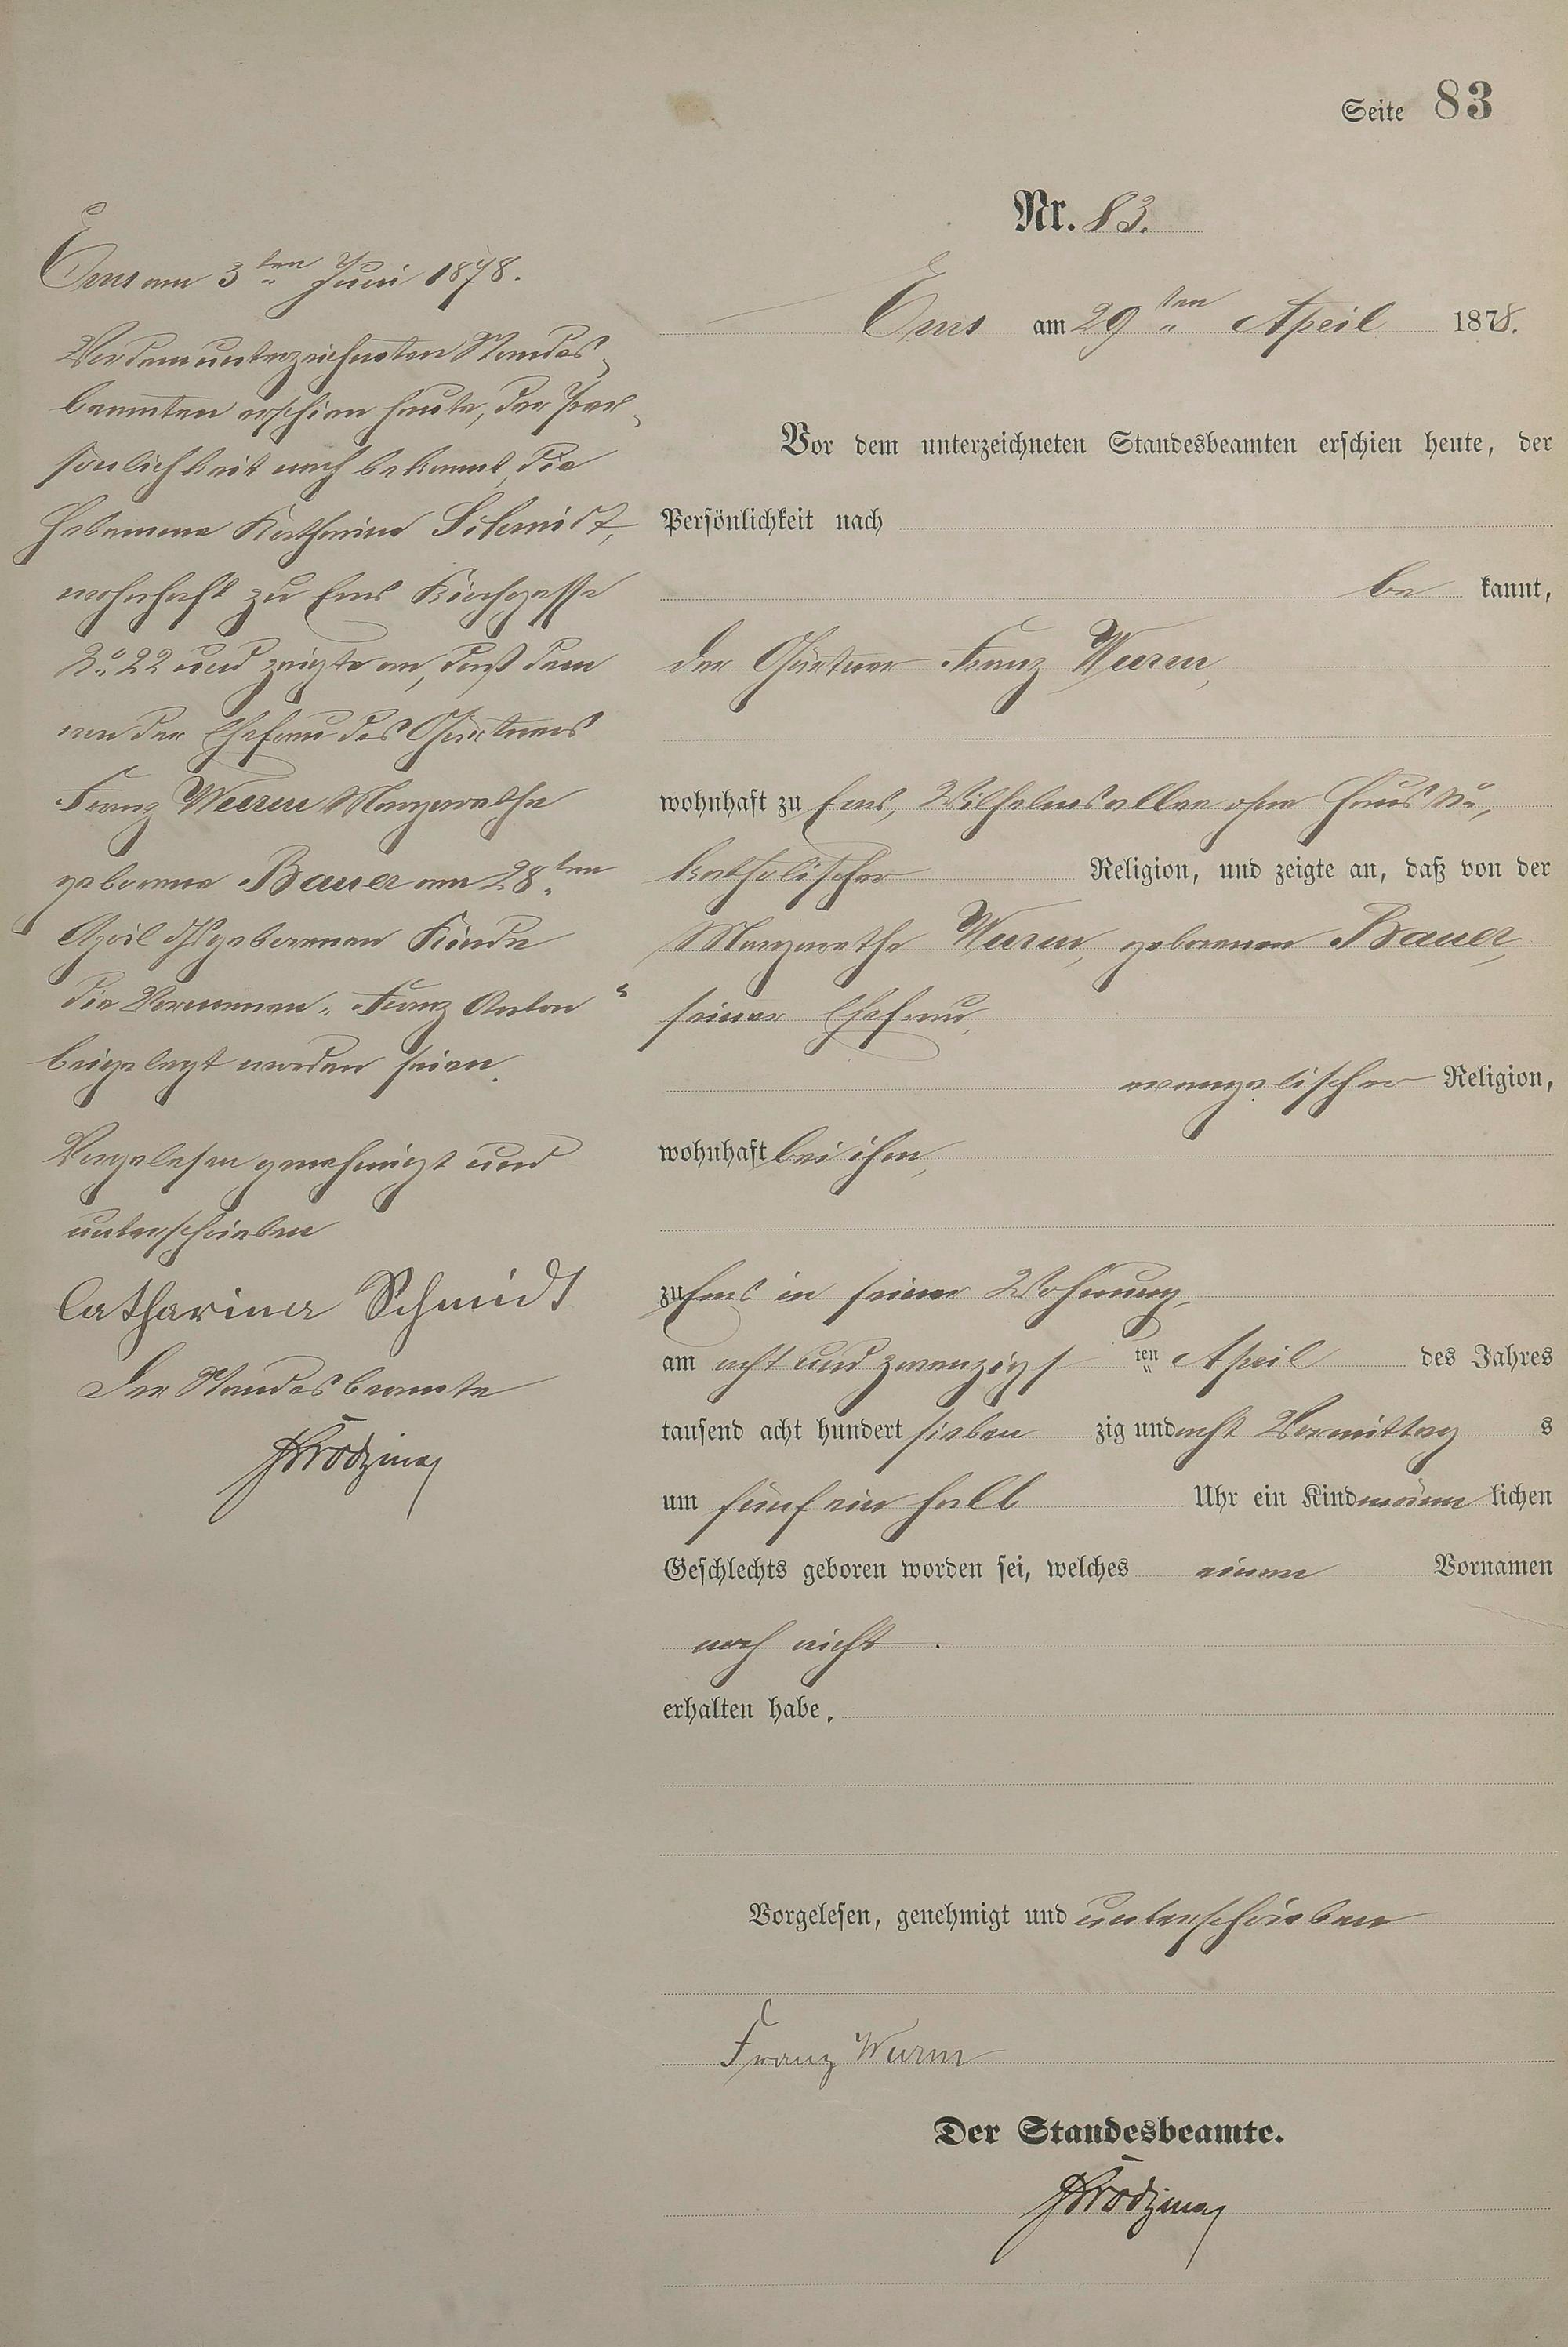 Seite 83
Nr. 83.
Ems am 29ten April 1878.
Vor dem unterzeichneten Standesbeamten erschien heute, der
Persönlichkeit nach
bekannt,
der Gärtner Franz Wurm,
wohnhaft zu Ems, Wilhelmsallee ohne Haus No,
katholischer Religion, und zeigte an, daß von der
Margarethe Wurm, geborenen Bauer,
seiner Ehefrau,
evangelischer Religion,
wohnhaft bei ihm,
zu Ems in seiner Wohnung,
am acht und zwanzigsten April des Jahres
tausend acht hundert siebenzig und acht Vormittags
um fünf ein halb Uhr ein Kind männlichen
Geschlechts geboren worden sei, welches einen Vornamen
noch nicht.
erhalten habe.
Vorgelesen, genehmigt und unterschrieben
Franz Wurm
Der Standesbeamte.
Ems am 3ten Juni 1878.
Vor dem unterzeichneten Standes-
beamten erschien heute, der Per-
sönlichkeit nach bekannt, die
Hebamme Katharina Schmidt,
wohnhaft zu Ems Kirchgasse
No 22 und zeigte an, daß dem
von der Ehefrau des Gärtners
Franz Wurm Margarethe
geborene Bauer am 28ten
April geborenen Kinde
die Vornamen „Franz Anton“
beigelegt worden seien.
Vorgelesen genehmigt und
unterschrieben
Catharina Schmidt
Der Standesbeamte